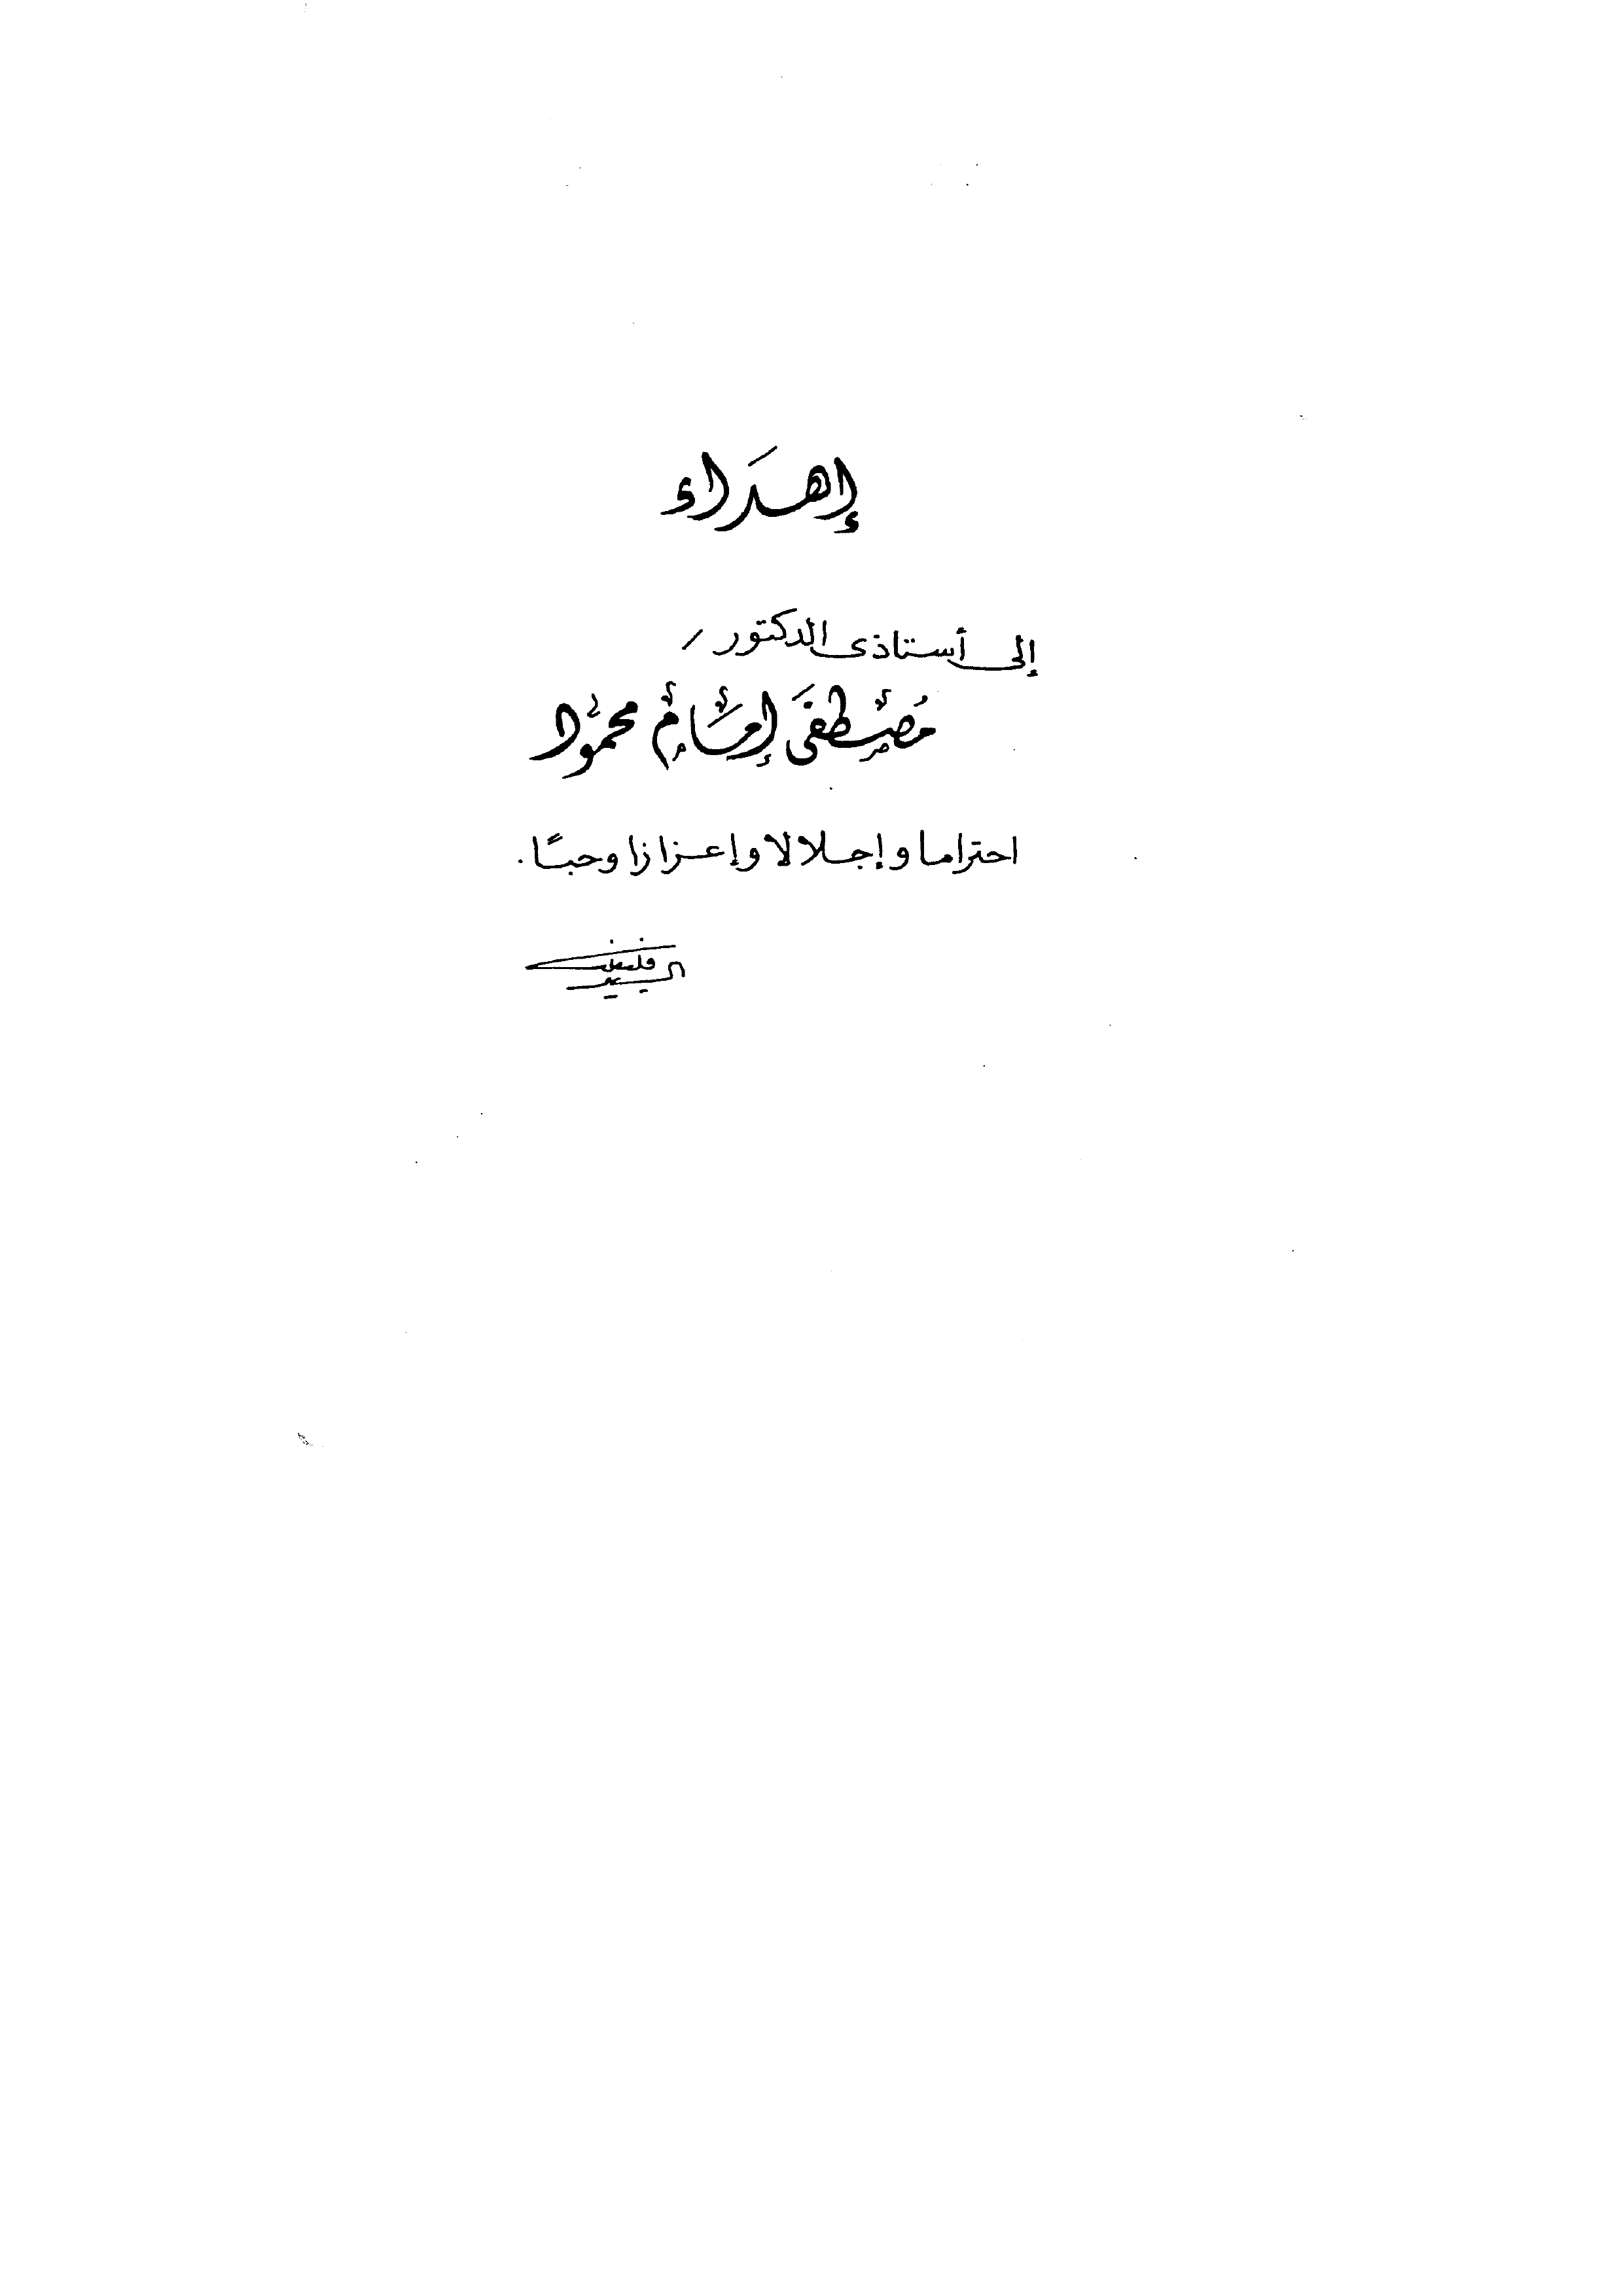 إهداء
إلى أستاذى الدكتور /
مصطفى إمام محمود
احتراما وإجلالا وإعزازا وحبًا.
السيد